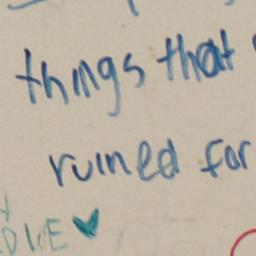 things that
ruined for